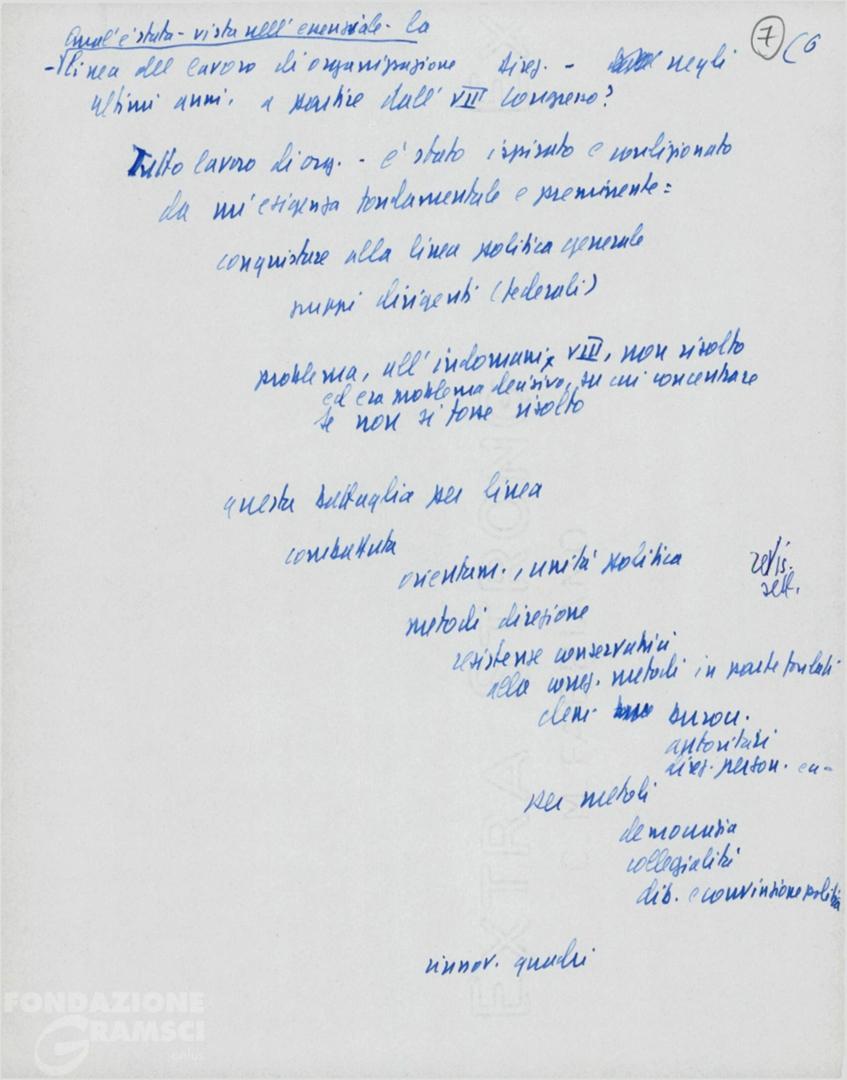 Qual'è stata - vista nell'essenziale - la
7 (6
- linea del lavoro di organizzazione direz. - negli
ultimi anni, a partire dall'VIII Congresso?
Tutto lavoro di org. - è stato ispirato e condizionato
da un'esigenza fondamentale e preminente:
conquistare alla linea politica generale
gruppi dirigenti (federali)
problema, all'indomani VIII, non risolto
ed era problema decisivo, su cui concentrare
se non si fosse risolto
questa battaglia per linea
combattuta
orientam., unità politica
revis.
sett.
metodi direzione
resistenze conservatrici
alla conq. metodi in parte fondati
elem. buroc.
autoritari
direz. person.
per metodi
democrazia
collegialità
dib. e convinzione politica
rinnov. quadri
EXTRA STRONG
FONDAZIONE
GRAMSCI
onlus